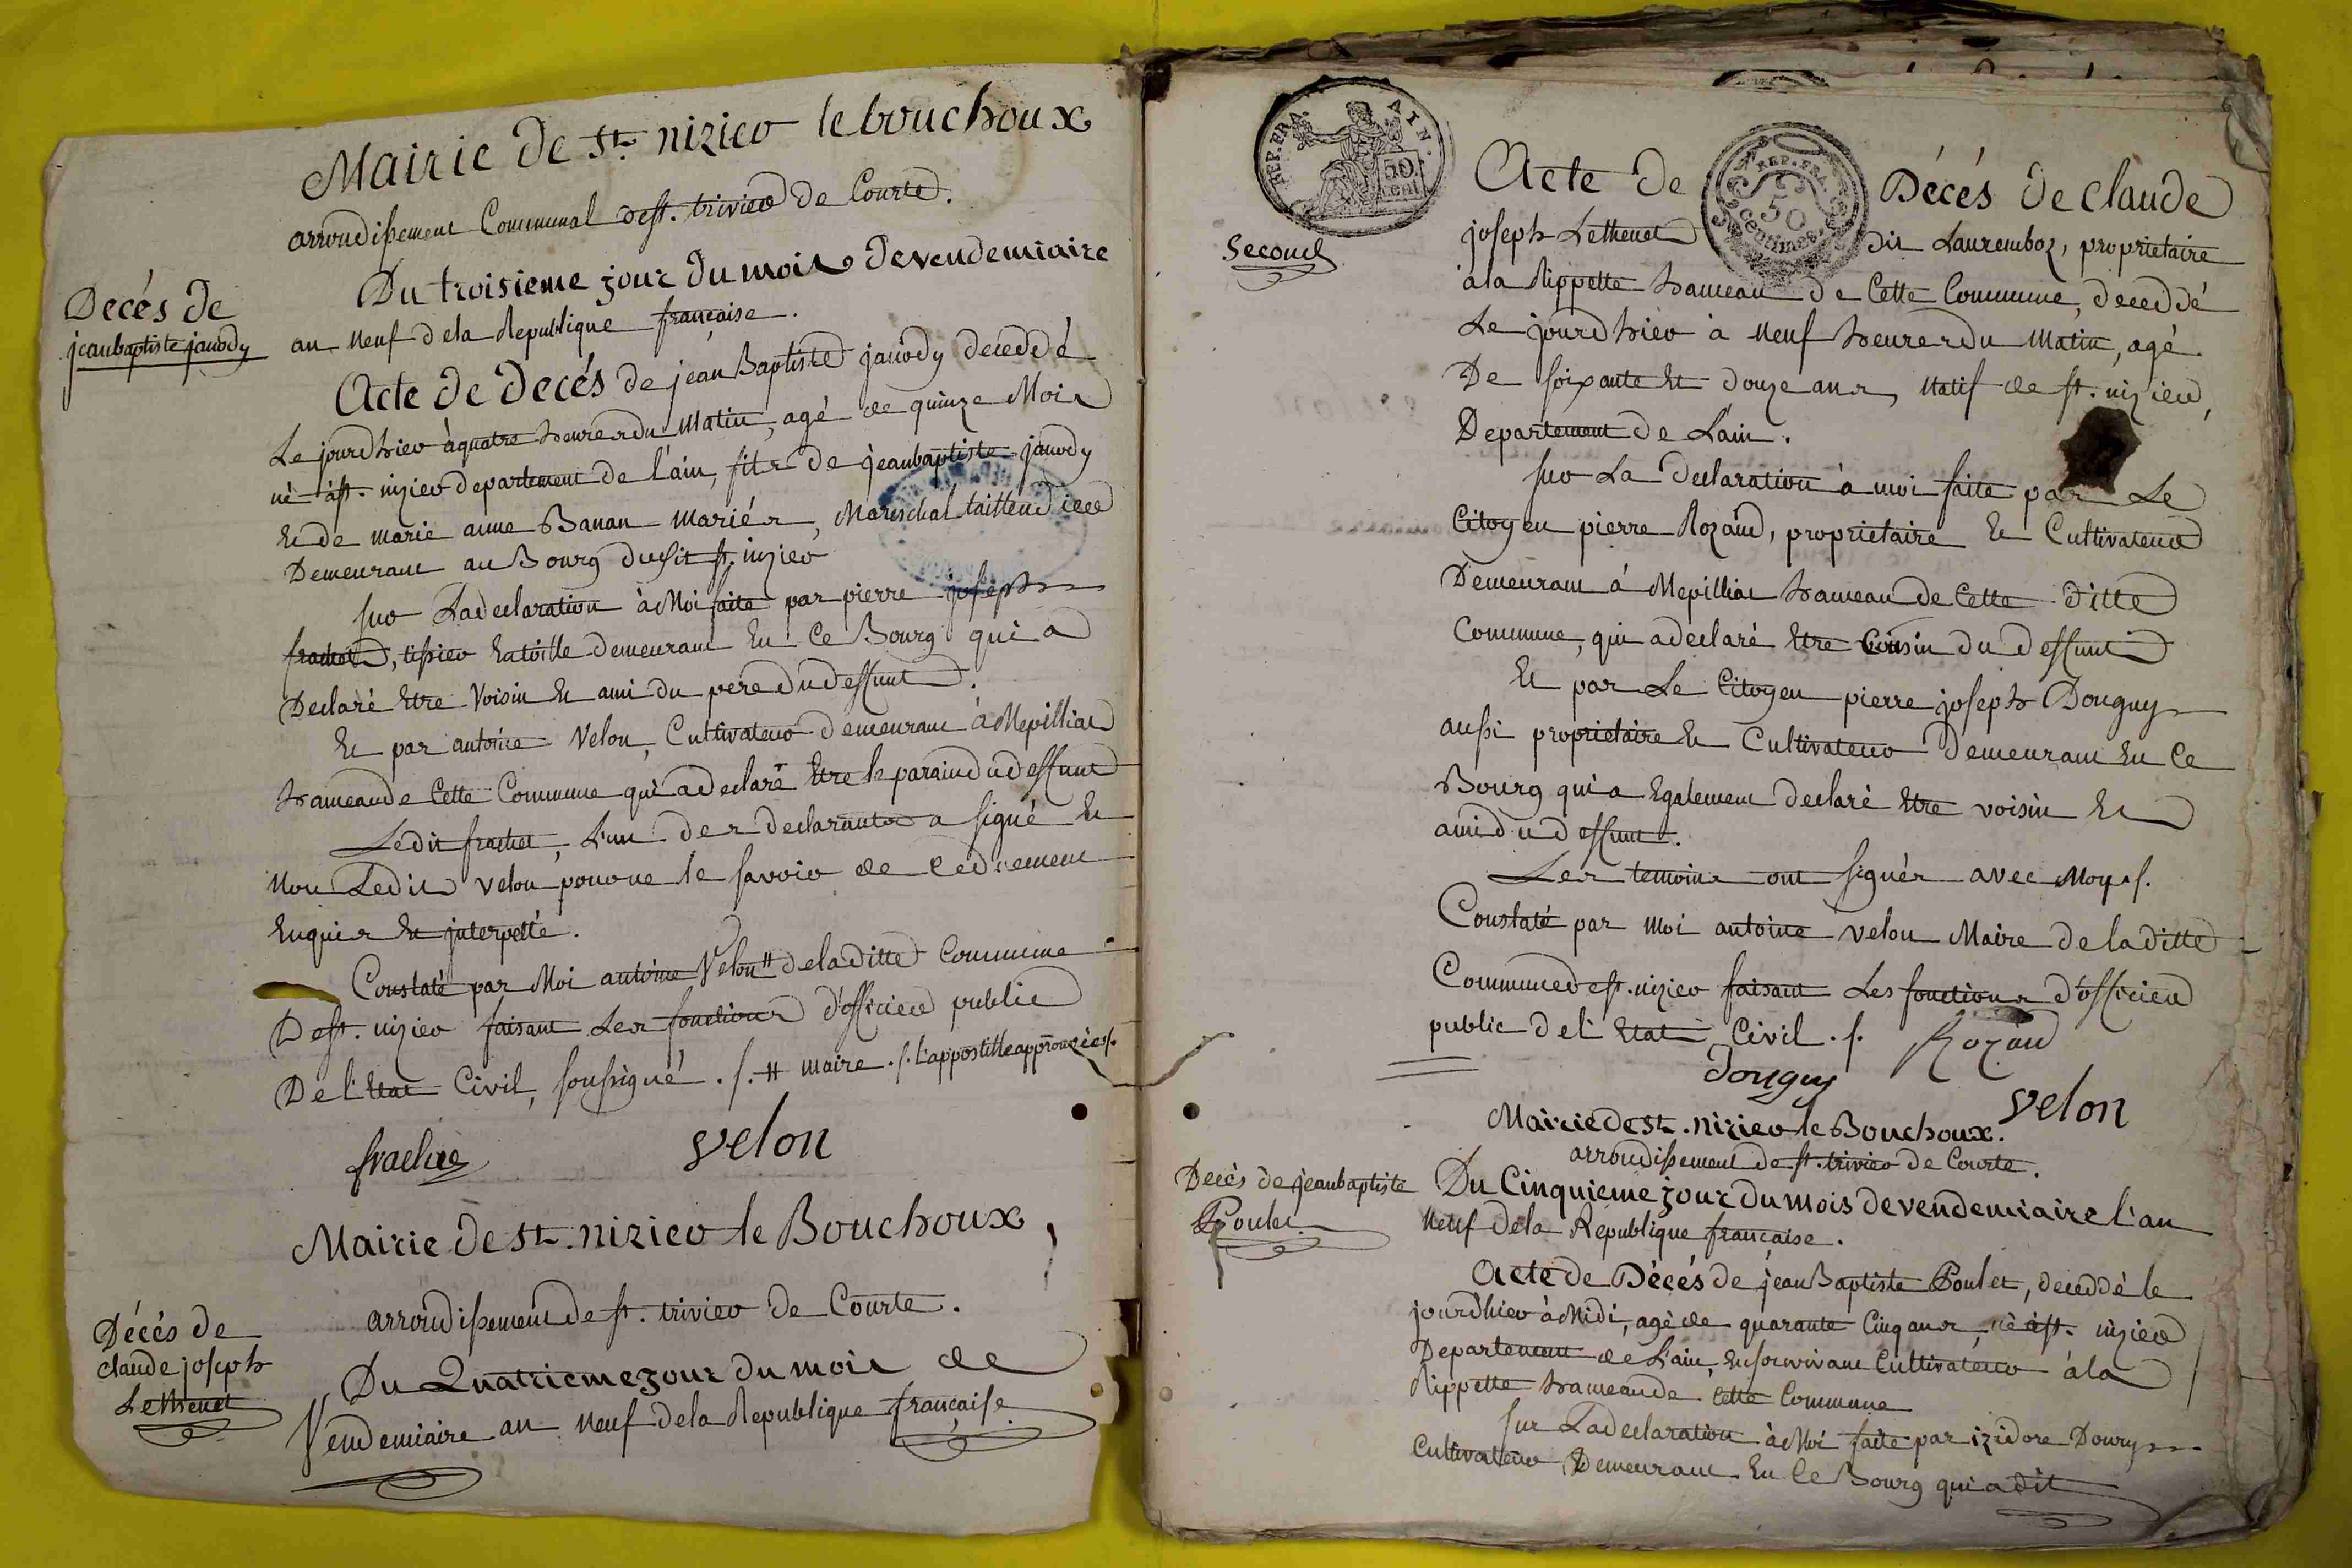 Mairie de St. nizier le bouchoux
arrondissement Communal de st. trivier de Courte.
Decés de
jeanbaptiste janody
Du troisieme jour du mois de vendemiaire
an neuf dela Republique française.
Acte de Decés de jean Baptiste janody deceddé
Le jourdhier à quatre heures du matin, agé de quinze Mois
né à st. nizier departement de l'ain, fils de jeanbaptiste janody
Et de marie anne Banan mariés, Marischal taillendier
Demeurant au Bourg dudit st. nizier
sur La declaration à Moi faite par pierre joseph
frachet, tissier En toille demeurant En Ce Bourg qui a
Declaré Etre Voisin Et ami du pere du deffunt.
Et par antoine Velon, Cultivateur demeurant à Mepilliat
hameau de Cette Commune qui a declaré Etre le parain du deffunt
Ledit frachet, L'un des declarants a signé Et
Non Ledit velon pour ne le savoir de ce duement
Enquis Et interpellé.
Constaté par Moi antoine Velon # de la ditte Commune
De st. nizier faisant Les fonctions d'officier public
De l'Etat Civil, soussigné ./. # maire ./. L'appostille approuvée ./.
frachet
velon
Mairie de St. nizier le Bouchoux
arrondissement de st. trivier de Courte.
Décés de
claude joseph
Lethenet
Du Quatrieme jour du mois de
Vendemiaire an neuf dela Republique française
REP. FRA. AIN.
50 cent
REP. FRA.
50
Centimes
Second
Acte de Décés de Claude
joseph Lethenet dit Lauremboz, proprietaire
à la Rippette hameau de Cette Commune, deceddé
Le jourdhier à neuf heures du Matin, agé
De soixante Et douze ans, natif de st. nizier,
Departement de L'ain.
sur La declaration à moi faite par Le
Citoyen pierre Rozand, proprietaire Et Cultivateur
Demeurant à Mepilliat hameau de Cette ditte
Commune, qui a declaré Etre Cousin du deffunt
Et par Le Citoyen pierre joseph Donguy
aussi proprietaire Et Cultivateur Demeurant En Ce
Bourg qui a Egalement declaré Etre voisin Et
ami du deffunt.
Les temoins ont signés avec Moy ./.
Constaté par moi antoine velon Maire de la ditte
Commune de st. nizier faisant Les fonctions d'officier
public de l'Etat Civil ./.
Rozand
Donguy
velon
Mairie de St. nizier le Bouchoux.
arrondissement de st. trivier de Courte.
Decès de jeanbaptiste
Poulet
Du Cinquieme jour du mois de vendemiaire l'an
neuf dela Republique française.
Acte de Décés de jean Baptiste Poulet, deceddé le
jourdhier à Midi, agé de quarante Cinq ans, né à st. nizier
Departement de L'ain, En son vivant Cultivateur à la
Rippette hameau de Cette Commune
sur La declaration à Moi faite par izidore Donguy
Cultivateur, Demeurant En Ce Bourg qui a dit